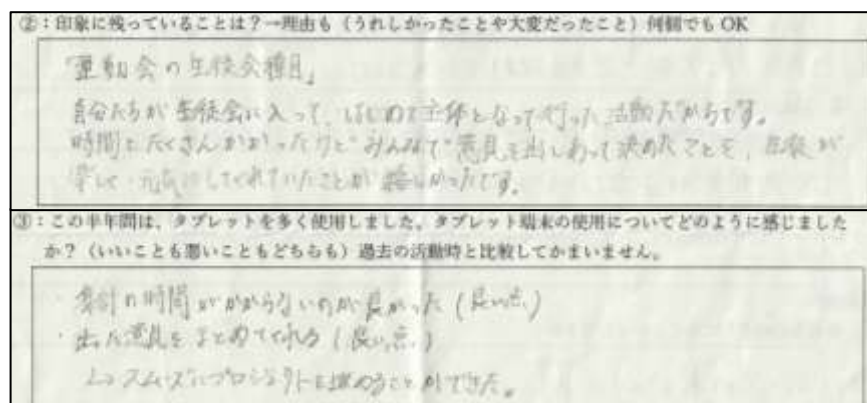 ②：印象に残っていることは？→理由も（うれしかったことや大変だったこと）何個でもOK
「運動会の生徒会種目」
自分たちが生徒会に入って、はじめて主体となって行った活動だからです。
時間もたくさんかかったけど みんなで意見を出しあって決めたことを、生徒が
楽しく・元気にしてくれていたことが嬉しかったです。
③：この半年間は、タブレットを多く使用しました。タブレット端末の使用についてどのように感じました
か？（いいことも悪いこともどちらも）過去の活動時と比較してかまいません。
集計の時間がかからないのが良かった（良い点）
・出た意見をまとめてくれる（良い点）
↳スムーズにプロジェクトを進めることができた。